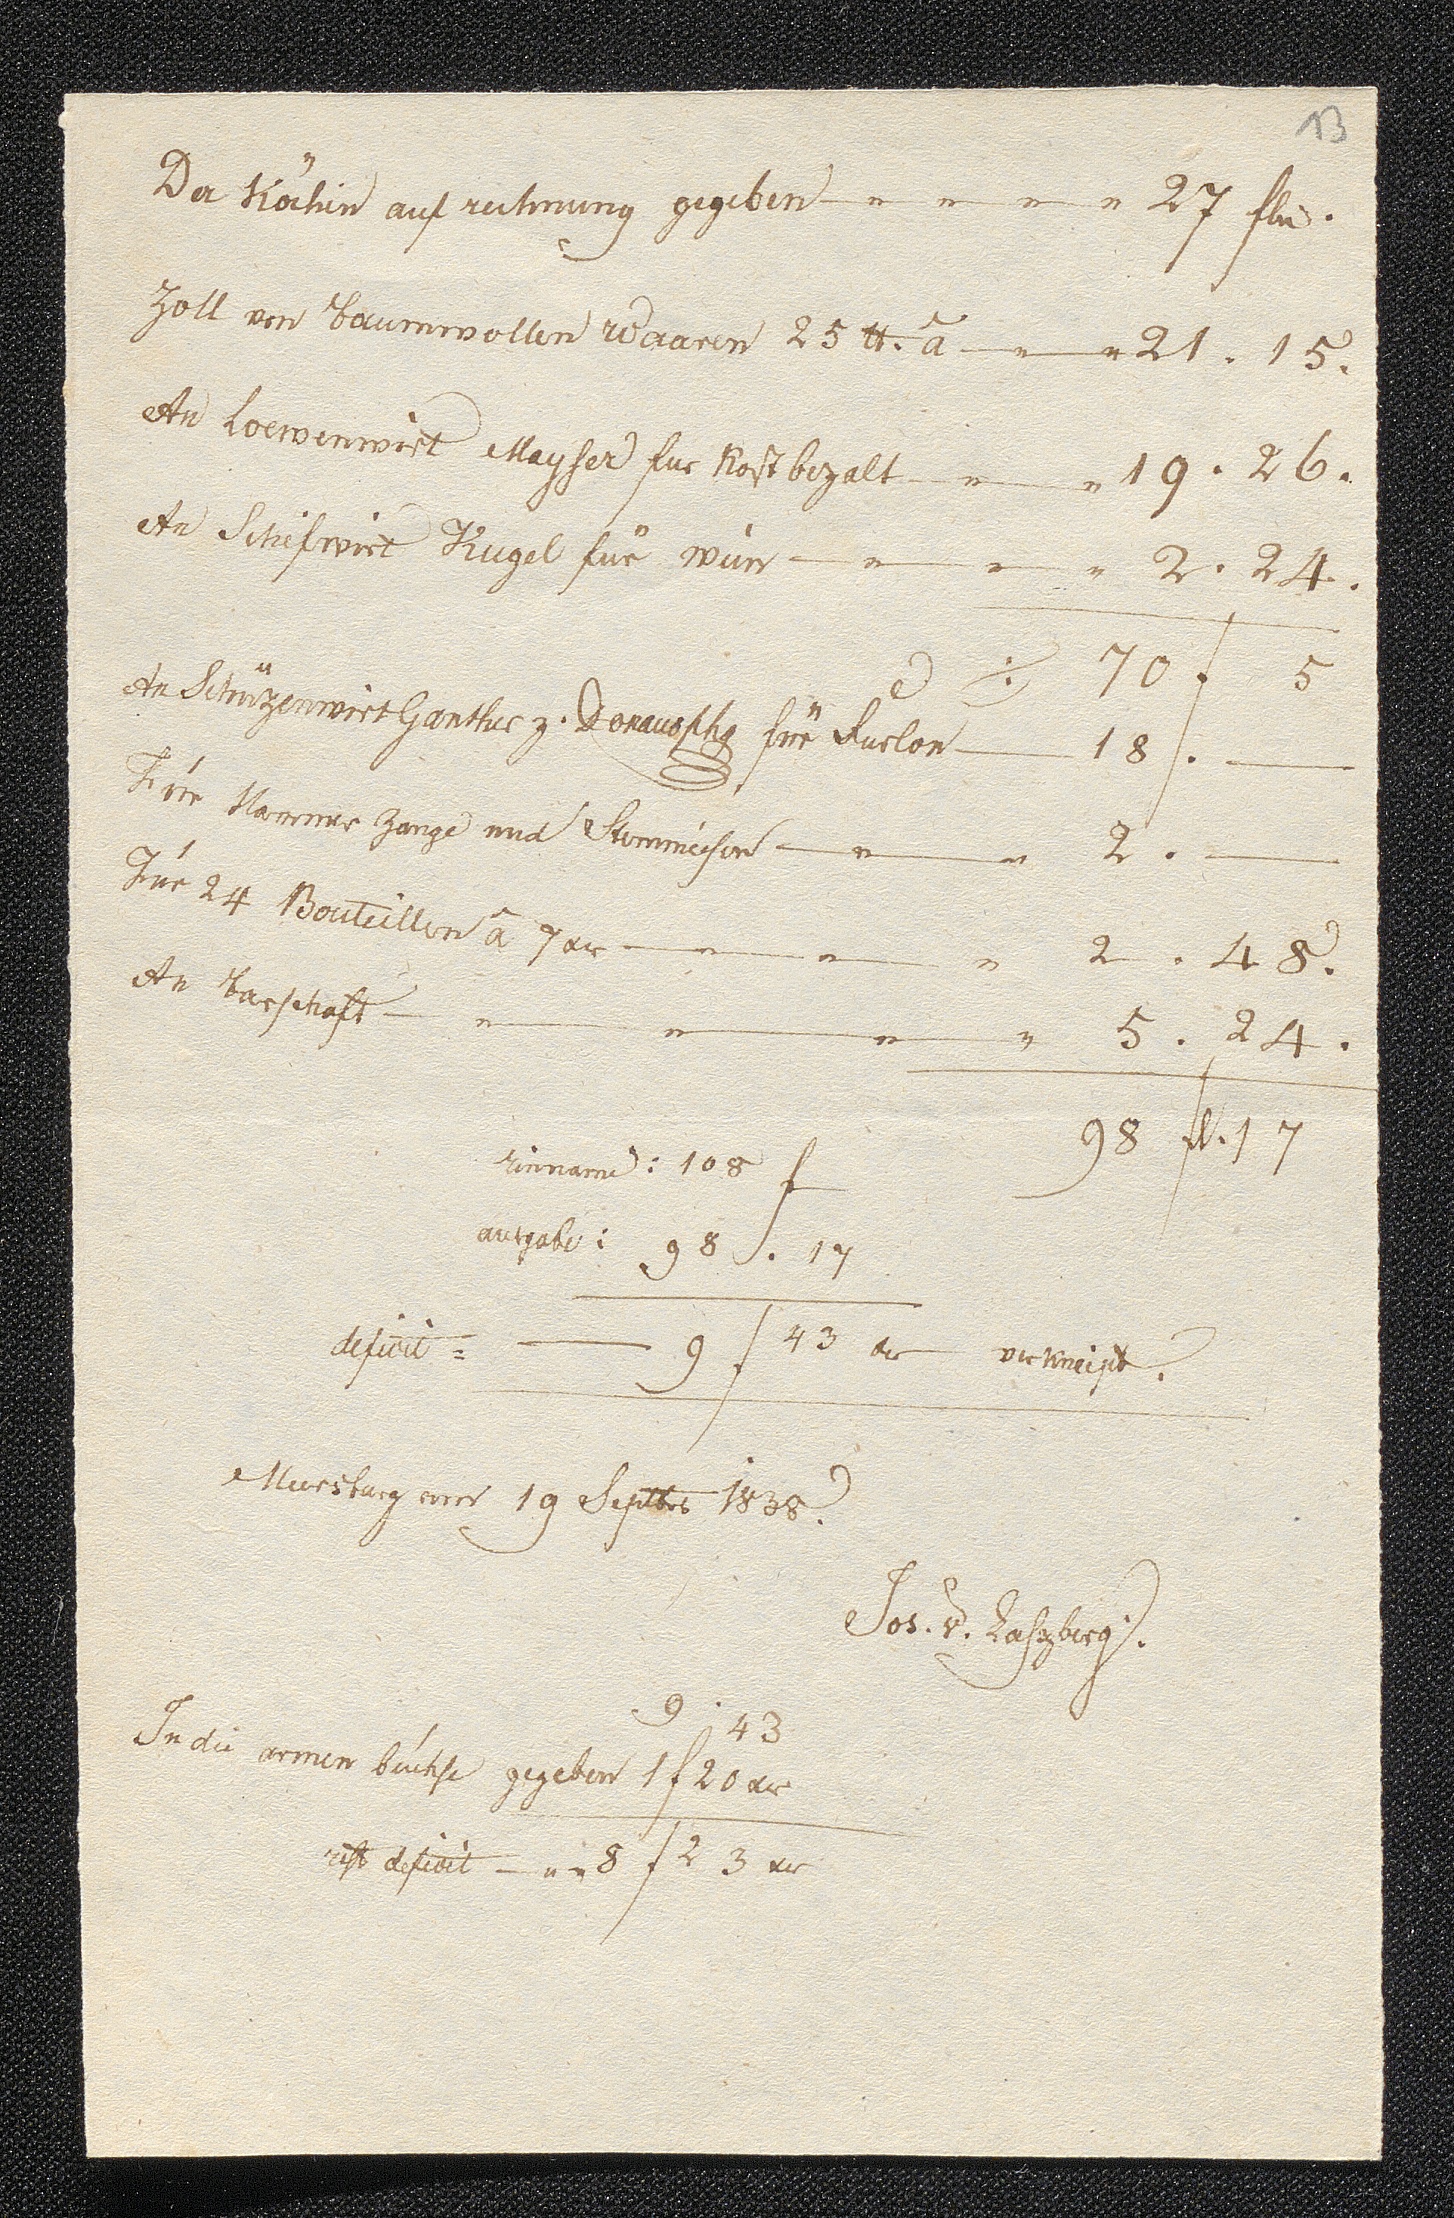 13
Der Köchin auf rechnung gegeben — „ — „ — „ — „ 27 fln.
Zoll von baumwollen waaren 25 ℔. à — „ — „ 21 . 15.
An Loewenwirt Mayser für Kost bezalt — „ — „ 19 . 26.
An Schifwirt Kugel für wein — „ — „ — „ 2 . 24.
70 f 5
An Schüzenwirt Ganther z. Donauöschg für Furlon — 18 f. —
Für Hammer Zange und Stemmeisen — „ — „ 2 . —
Für 24 Bouteillen à 7 xr — „ — „ — „ 2 . 48.
An barschaft — „ — „ — „ — „ 5 . 24.
98 fl. 17
einname: 108 f
ausgabe: 98 . 17
deficit = — 9 f 43 xr verkneipt.
Meersburg am 19 Septbrs 1838.
Jos. v. Laszberg.
9 . 43
In die armen büchse gegeben 1 f 20 xr
rest deficit — „ „ 8 f 23 xr